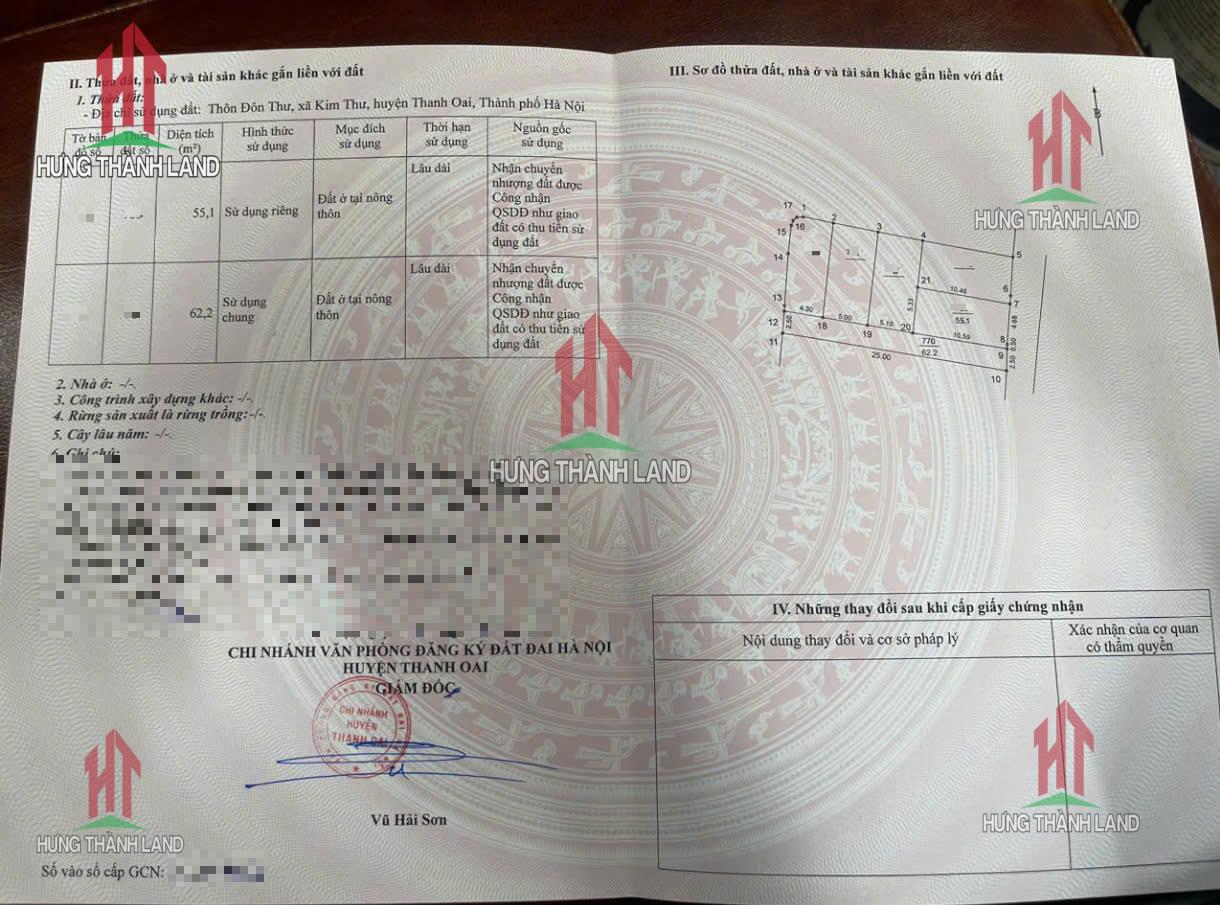 II. Thửa đất, nhà ở và tài sản khác gắn liền với đất
1. Thửa đất:
- Địa chỉ sử dụng đất: Thôn Đôn Thư, xã Kim Thư, huyện Thanh Oai, Thành phố Hà Nội
Tờ bản đồ số
Thửa đất số
Diện tích (m²)
Hình thức sử dụng
Mục đích sử dụng
Thời hạn sử dụng
Nguồn gốc sử dụng
55,1
Sử dụng riêng
Đất ở tại nông thôn
Lâu dài
Nhận chuyển
nhượng đất được
Công nhận
QSDĐ như giao
đất có thu tiền sử
dụng đất
62,2
Sử dụng chung
Đất ở tại nông thôn
Lâu dài
Nhận chuyển
nhượng đất được
Công nhận
QSDĐ như giao
đất có thu tiền sử
dụng đất
2. Nhà ở: -/-.
3. Công trình xây dựng khác: -/-.
4. Rừng sản xuất là rừng trồng: -/-.
5. Cây lâu năm: -/-.
6. Ghi chú:
CHI NHÁNH VĂN PHÒNG ĐĂNG KÝ ĐẤT ĐAI HÀ NỘI
HUYỆN THANH OAI
GIÁM ĐỐC
CHI NHÁNH
HUYỆN
THANH OAI
Vũ Hải Sơn
Số vào sổ cấp GCN:
III. Sơ đồ thửa đất, nhà ở và tài sản khác gắn liền với đất
B
17
1
2
3
4
5
16
15
14
13
12
11
21
6
7
8
9
10
18
19
20
10.46
5.33
55,1
4.68
10.59
4.30
5.00
5.10
2.50
770
62.2
0.50
2.50
25.00
IV. Những thay đổi sau khi cấp giấy chứng nhận
Nội dung thay đổi và cơ sở pháp lý
Xác nhận của cơ quan
có thẩm quyền
HƯNG THÀNH LAND
HƯNG THÀNH LAND
HƯNG THÀNH LAND
HƯNG THÀNH LAND
HƯNG THÀNH LAND